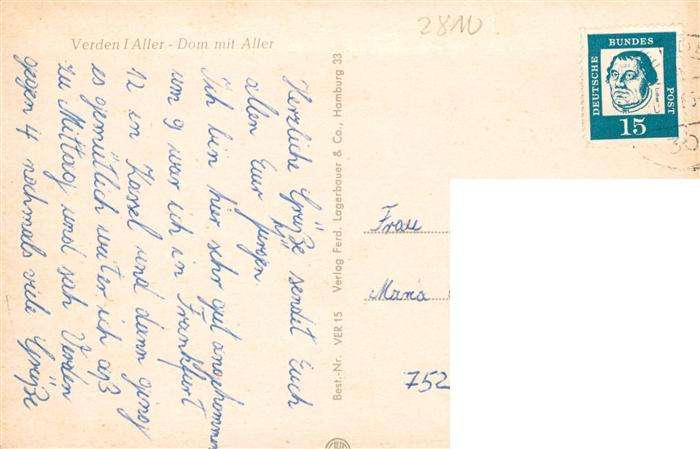 2810
Verden / Aller - Dom mit Aller
DEUTSCHE
BUNDES
POST
15
Herzliche Grüße sendet Euch
allen Euer Jürgen
Ich bin hier sehr gut angekommen
um 9 war ich in Frankfurt
12 in Kassel und dann ging
es gemütlich weiter ich aß
zu Mittag und sah Verden
gegen 4 nochmals viele Grüße
Best.-Nr. VER 15 Verlag Ferd. Lagerbauer & Co., Hamburg 33
Frau
Maria
752